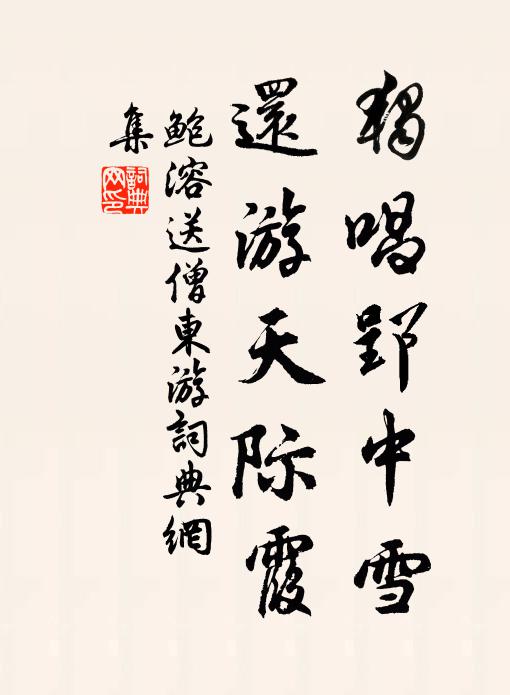 獨唱郢中雪
還游天际霞
鲍溶送僧東游詞典網
集
詞典网印